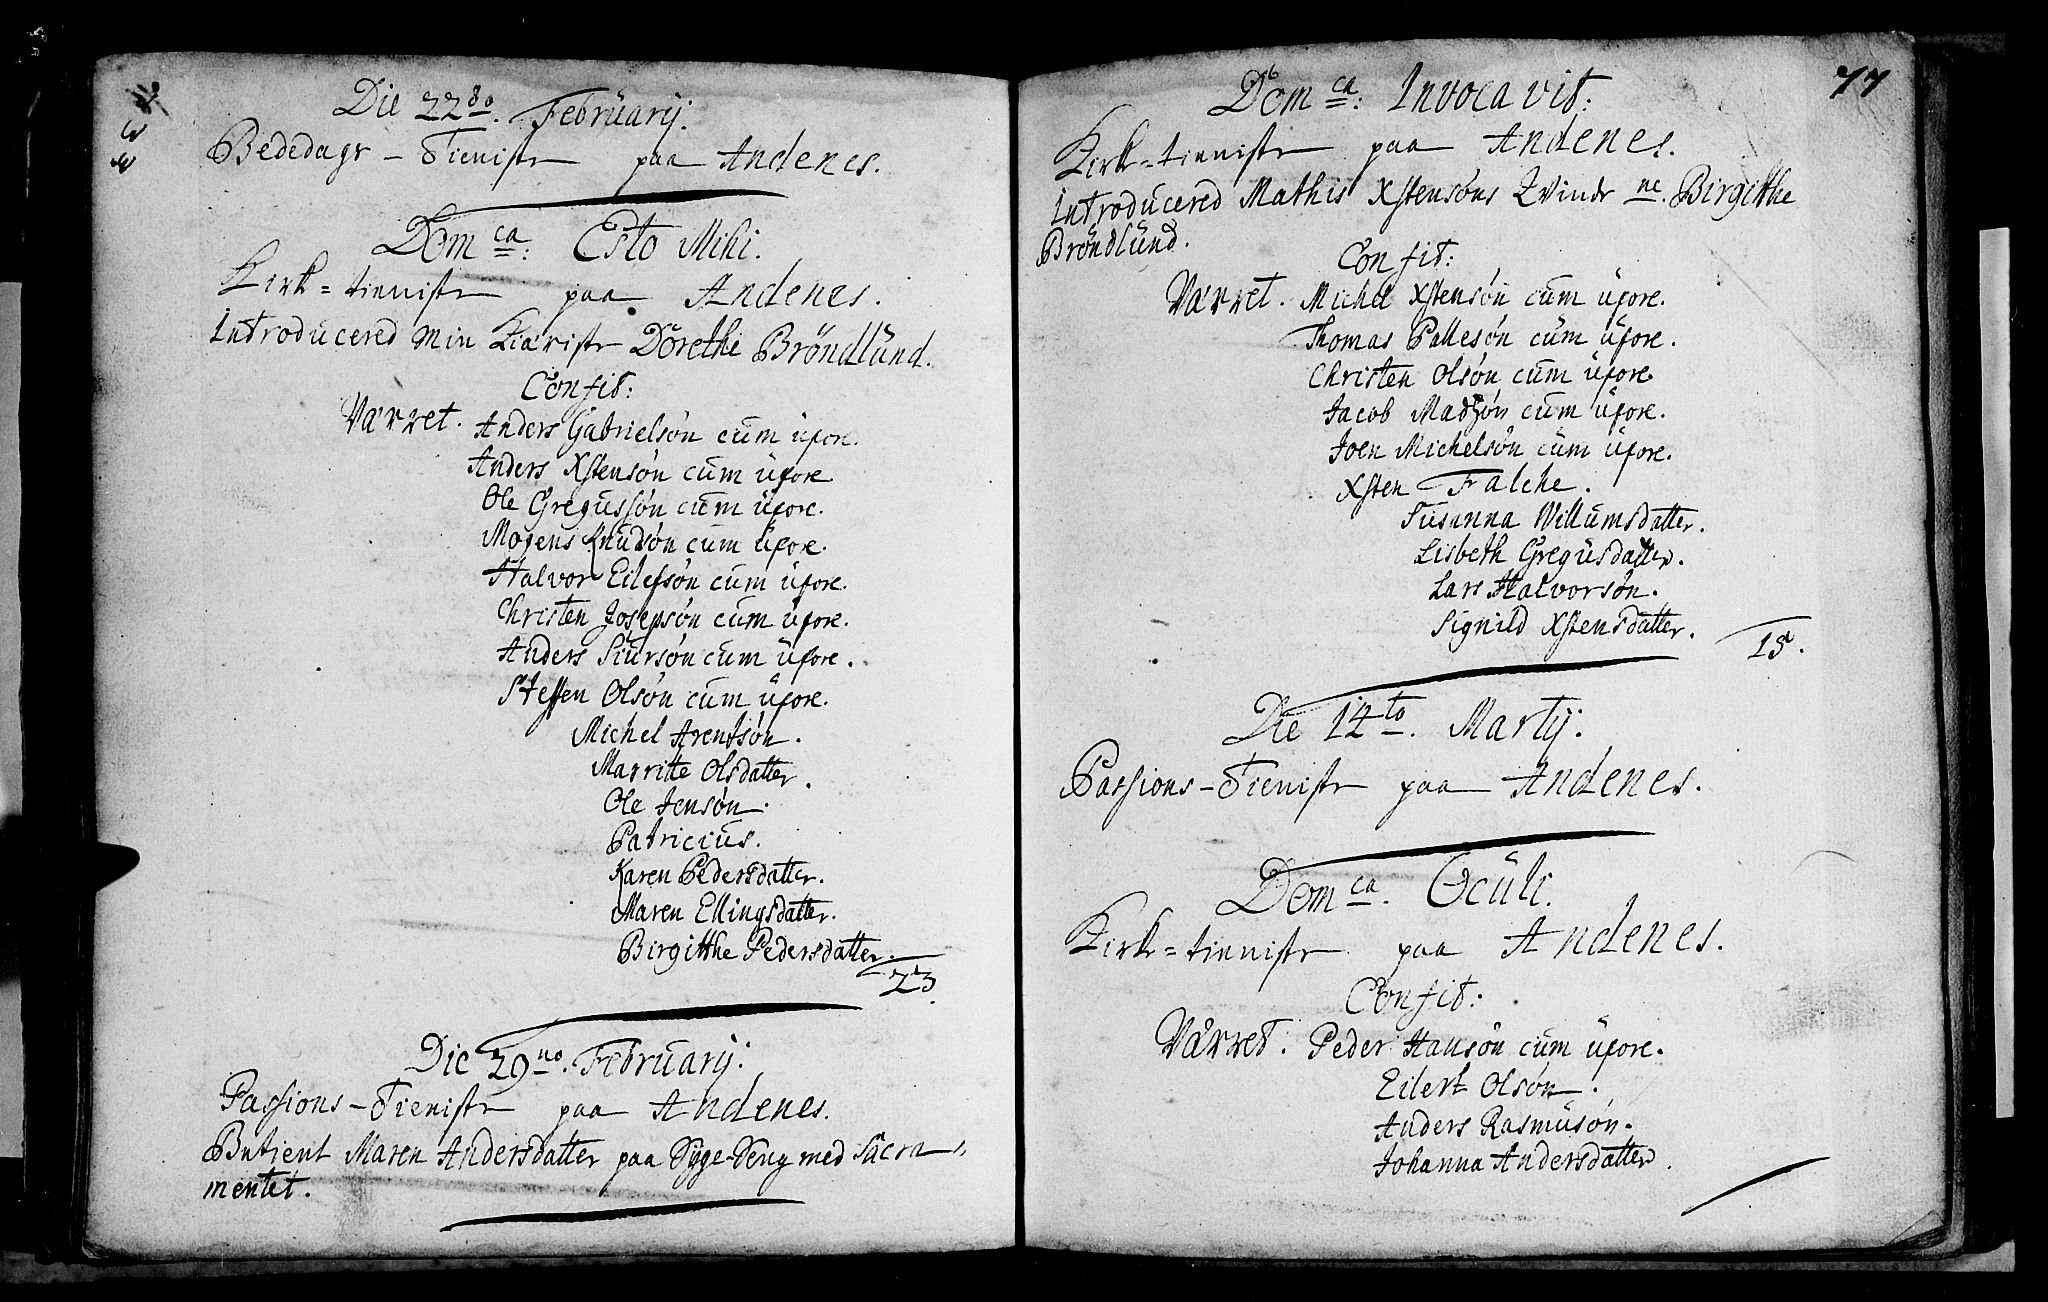 Die 22do. Februarij.
Bededags-Tieniste paa Andenes.
Domca: Esto Mihi.
Kirk=tieniste paa Andenes.
Introducered min Kiæriste Dorethe Bröndlund.
Confit:
Værret. Anders Gabrielsön cum uxore.
Anders Xstensön cum uxore
Ole Gregussön cum uxore.
Mogens Knudsön cum uxore.
Halvor Eilefsön cum uxore.
Christen Josepsön cum uxore.
Anders Siursön cum uxore.
Steffen Olsön cum uxore.
Michel Arentsön.
Marritte Olsdatter.
Ole Jensön.
Patricius.
Karen Pedersdatter.
Maren Ellingsdatter.
Birgitthe Pedersdatter.
23.
Die 29no. Februarij.
Passions-Tieniste paa Andenes.
Betient Maren Andersdatter paa Syge-Seng med Sacra=
mentet.
77
Domca: Invocavit:
Kirk=tieniste paa Andenes.
Introducered Mathis Xstensöns Qvinde ne. Birgitthe
Bröndlund.
Confit:
Værret. Michel Xstensön cum uxore.
Thomas Pallesön cum uxore.
Christen Olsön cum uxore.
Jacob Madsön cum uxore.
Joen Michelsön cum uxore.
Xsten Falche.
Susanna Willumsdatter.
Lisbeth Gregusdatter.
Lars Halvorsön.
Signild Xstensdatter.
15.
Die 14to. Martij.
Passions-Tieniste paa Andenes.
Domca. Oculi.
Kirk=tieniste paa Andenes.
Confit:
Værret. Peder Hansön cum uxore.
Eilert Olsön.
Anders Rasmusön.
Johanna Andersdatter.